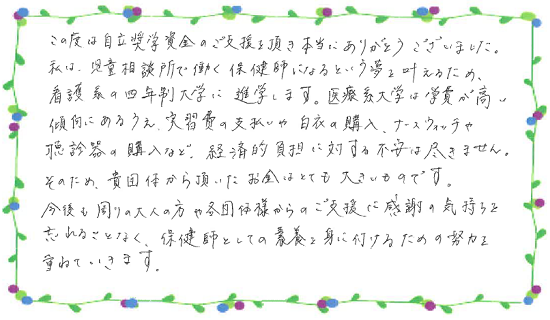 この度は自立奨学資金のご支援を頂き本当にありがとうございました。
私は、児童相談所で働く保健師になるという夢を叶えるため、
看護系の四年制大学に進学します。医療系大学は学費が高い
傾向にあるうえ、実習費の支払いや白衣の購入、ナースウォッチや
聴診器の購入など、経済的負担に対する不安は尽きません。
そのため、貴団体から頂いたお金はとても大きいものです。
今後も周りの大人の方や各団体様からのご支援に感謝の気持ちを
忘れることなく、保健師としての素養を身に付けるための努力を
重ねていきます。